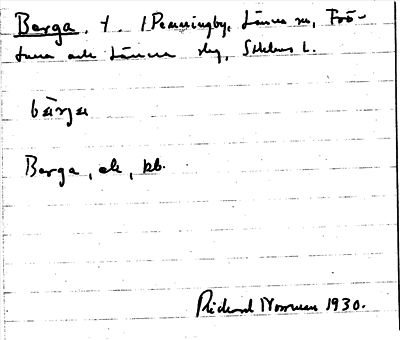 Berga, t. /Penningby, Länna sn, Frö-
tuna och Länna skg, Sthlms l.
bärja
Berga, ek, kb.
Rickard Norrman 1930.